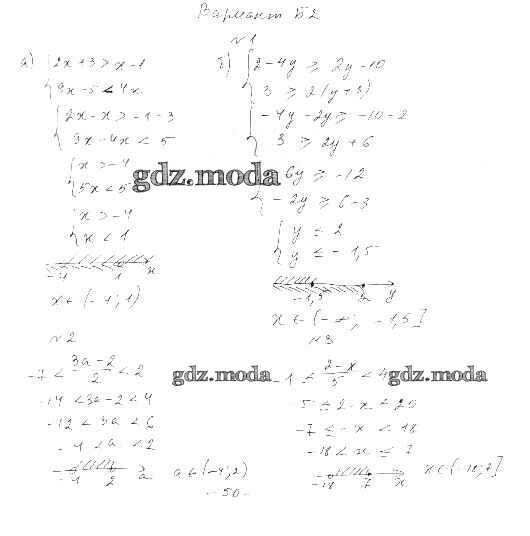 Вариант Б2
№1
а) { 2x+3 > x-1
9x-5 < 4x
{ 2x-x > -1-3
9x-4x < 5
{ x > -4
5x < 5
{ x > -4
x < 1
-4 1 x
x ∈ (-4; 1)
б) { 2-4y ≥ 2y-10
3 ≥ 2(y+3)
{ -4y-2y ≥ -10-2
3 ≥ 2y+6
{ -6y ≥ -12
-2y ≥ 6-3
{ y ≤ 2
y ≤ -1,5
-1,5 2 y
x ∈ (-∞; -1,5]
gdz.moda
№2
-7 < (3a-2)/2 < 2
-14 < 3a-2 < 4
-12 < 3a < 6
-4 < a < 2
-4 2 a
a ∈ (-4; 2)
gdz.moda
№3
-1 ≤ (2-x)/5 < 4
-5 ≤ 2-x < 20
-7 ≤ -x < 18
-18 < x ≤ 7
-18 7 x
x ∈ (-18; 7]
gdz.moda
-50-